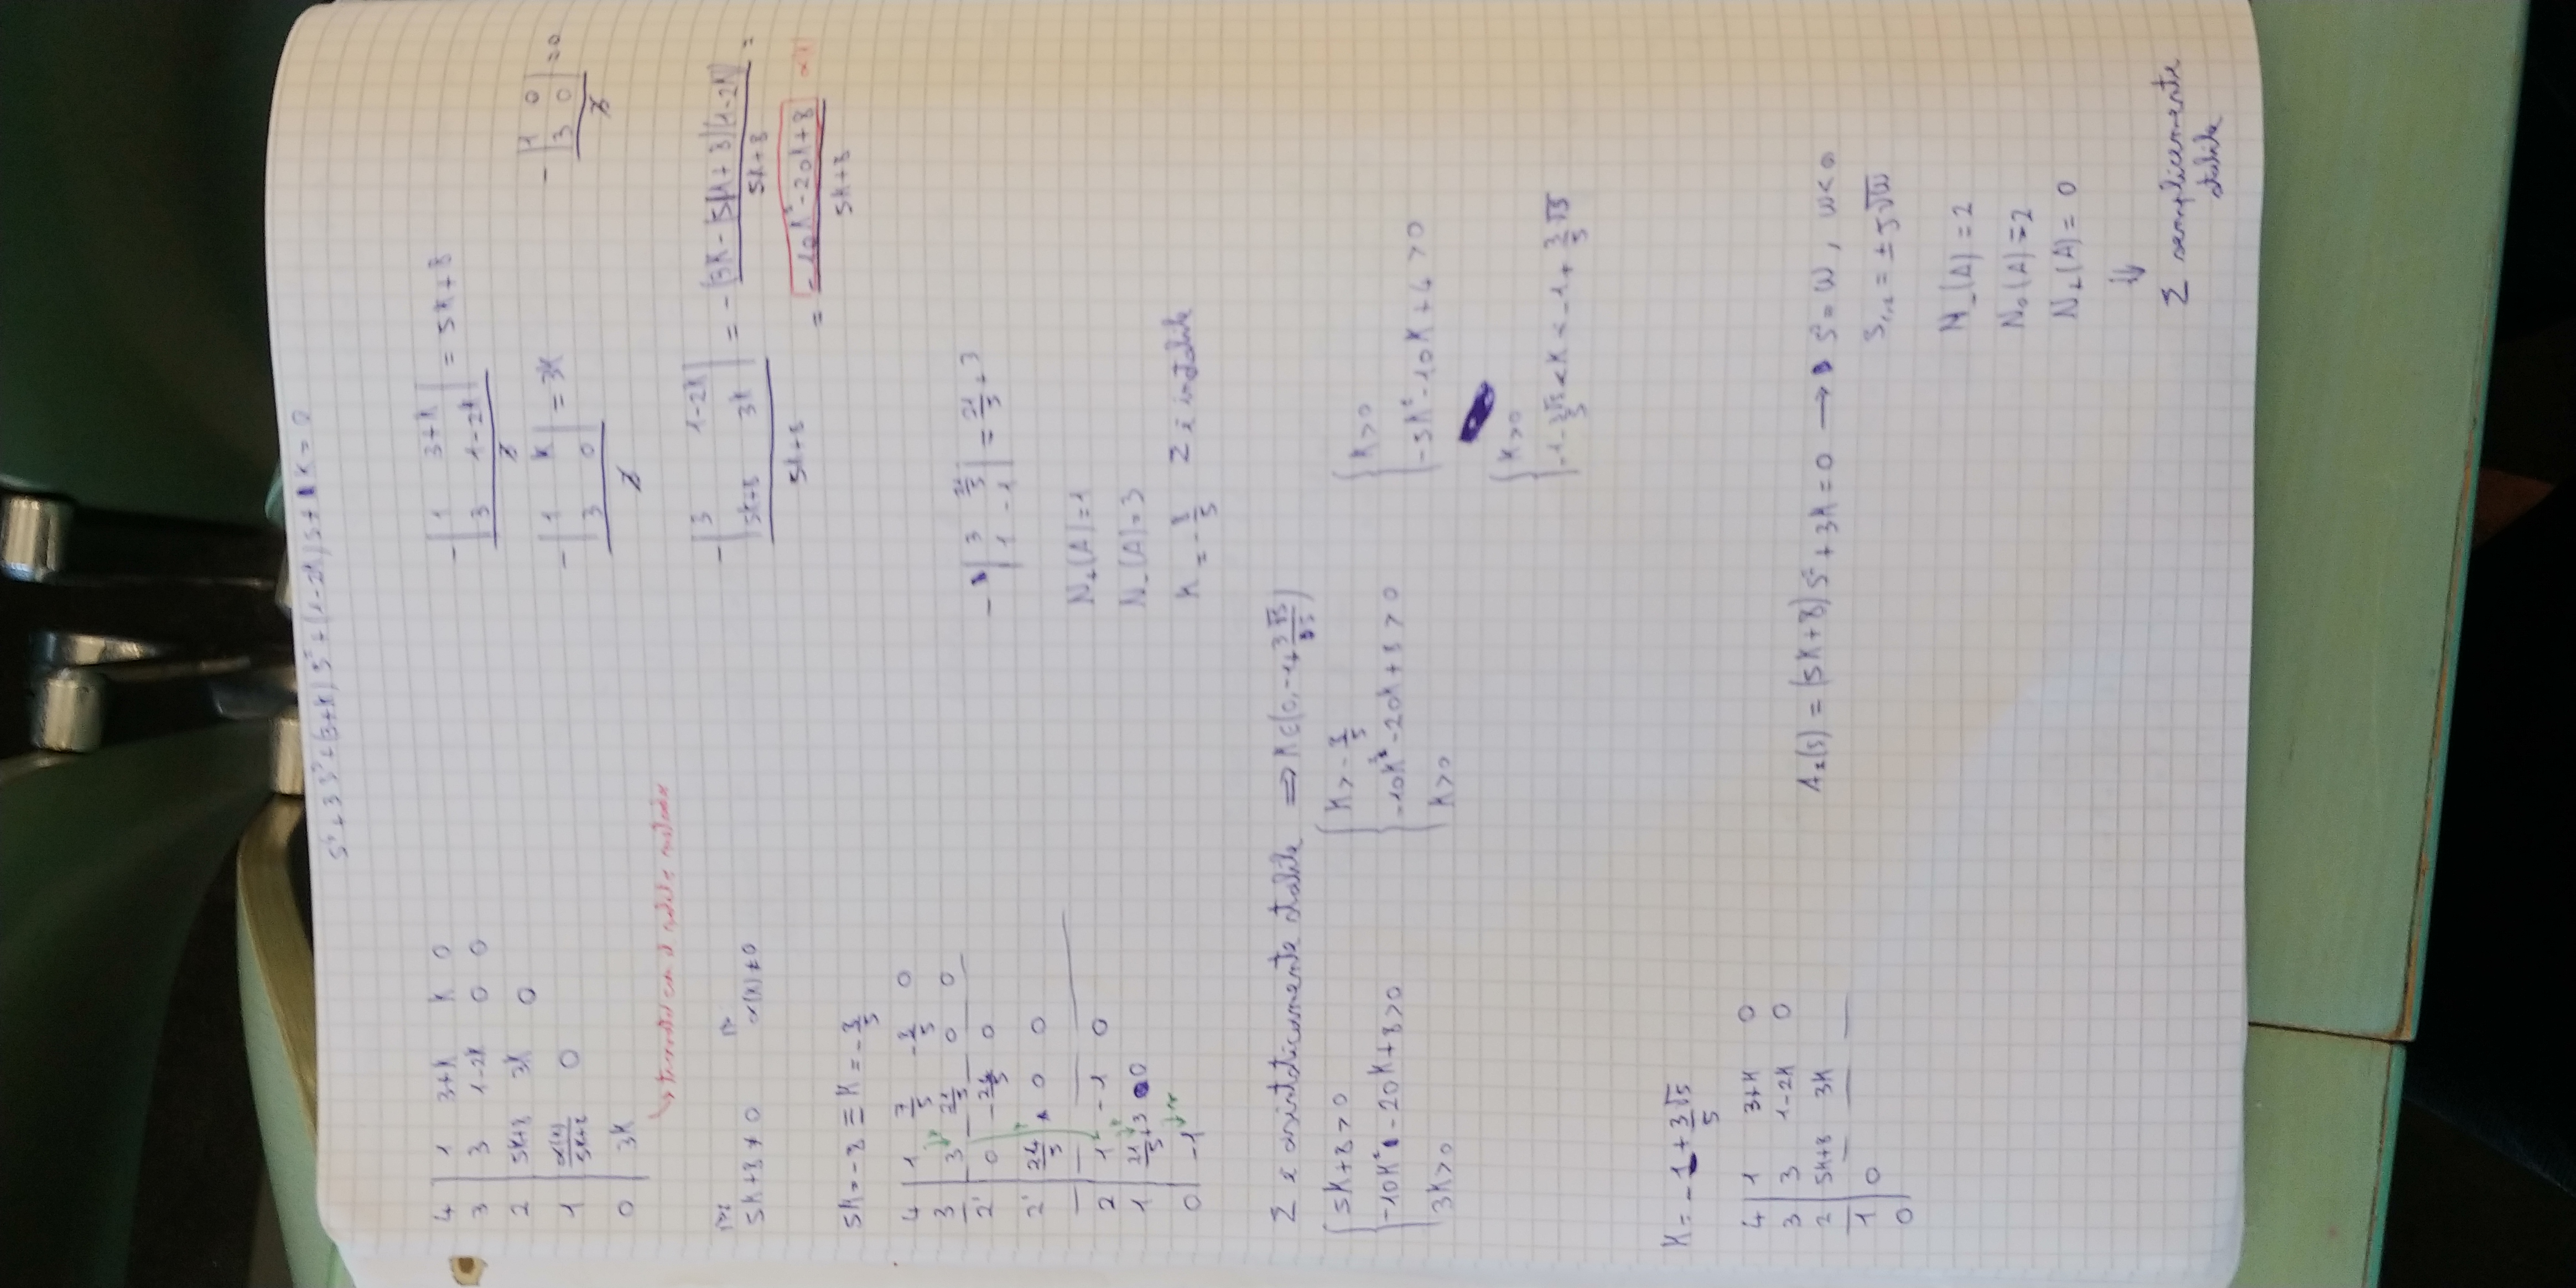 s⁴ + 3s³ + (3+K)s² + (1-2K)s + K = 0
4 | 1 3+K K 0
3 | 3 1-2K 0 0
2 | 5K+8 3K 0
1 | α(K)/(5K+8) 0
0 | 3K
-|1 3+K; 3 1-2K|/3 = 5K+8
-|1 K; 3 0|/3 = 3K
-|1 0; 3 0|/3 = 0
5K+8 ≠ 0 α(K) ≠ 0
-|3 1-2K; 5K+8 3K|/(5K+8) =
= (-10K²-20K+8)/(5K+8) α(K)
5K = -8 ≡ K = -8/5
4 | 1 7/5 -8/5 0
3 | 3 21/5 0 0
2' | 0 -24/5 0
2' | 24/5 0 0
2 | 1 -1 0
1 | 21/5+3 0
0 | -1
-|3 21/5; 1 -1| = 21/5+3
N₊(A) = 1
N₋(A) = 3
K = -8/5 Σ è instabile
Σ è asintoticamente stabile ⟹ K∈(0, -1+3√5/5)
{ 5K+8 > 0
-10K² - 20K+8 > 0
3K > 0
{ K > -8/5
-10K² - 20K + 8 > 0
K > 0
{ K > 0
-5K² - 10K + 4 > 0
{ K > 0
-1 - 3√5/5 < K < -1 + 3/5 √5
K = -1 + 3√5/5
4 | 1 3+K 0
3 | 3 1-2K 0
2 | 5K+8 3K
1 | 0
0 |
A₂(s) = (5K+8)s² + 3K = 0 → s² = ω, ω < 0
S₁,₂ = ± j√ω
N₋(A) = 2
N₀(A) = 2
N₊(A) = 0
⇓
Σ semplicemente
stabile